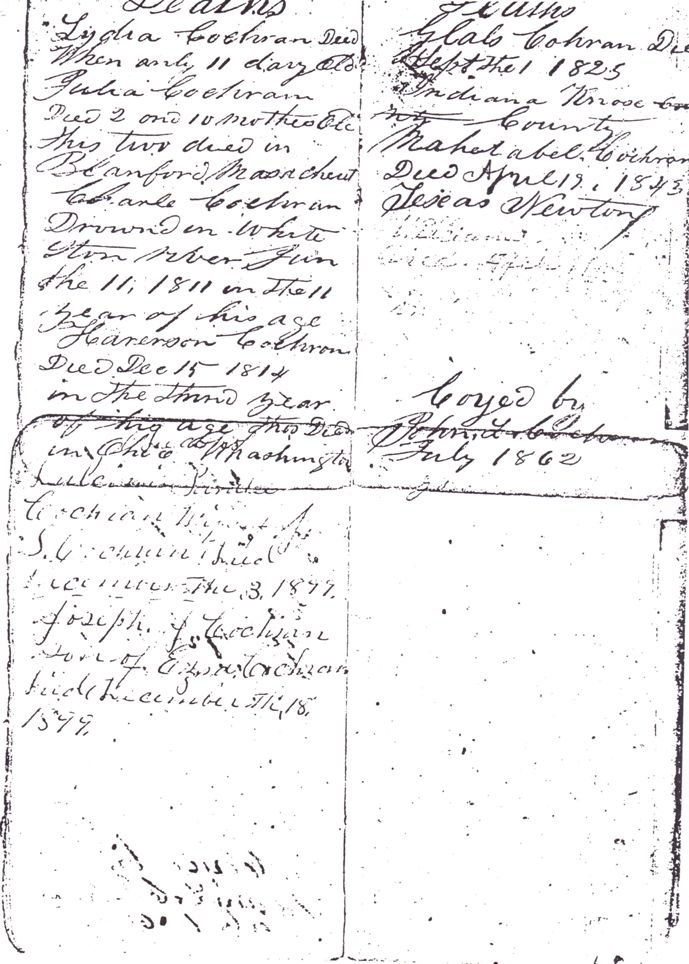 Deaths
Lydia Cochran Died
When only 11 days Old
Julia Cochran
Died 2 and 10 mothes Old
this two died in
Blanford Masacheut
Charle Cochran
Drownd in White
Ston River Jun
the 11, 1811 in the 11
year of his age
Harerson Cochron
Died Dec 15 1814
in the third year
of his age this Died
in Ohio Washington
Cochran Wife of
J. Cochran Died
December The, 3, 1899.
Joseph. J Cochran
son of Ezra Cochran
Died December Th, 18,
1899.
Deaths
Glals Cohran Died
Sept the 1 1825
Indiana Knose
County
Mahetabel. Cochran
Died April 19, 1843
Texas Newton
William
Coyed by
John
July 1862